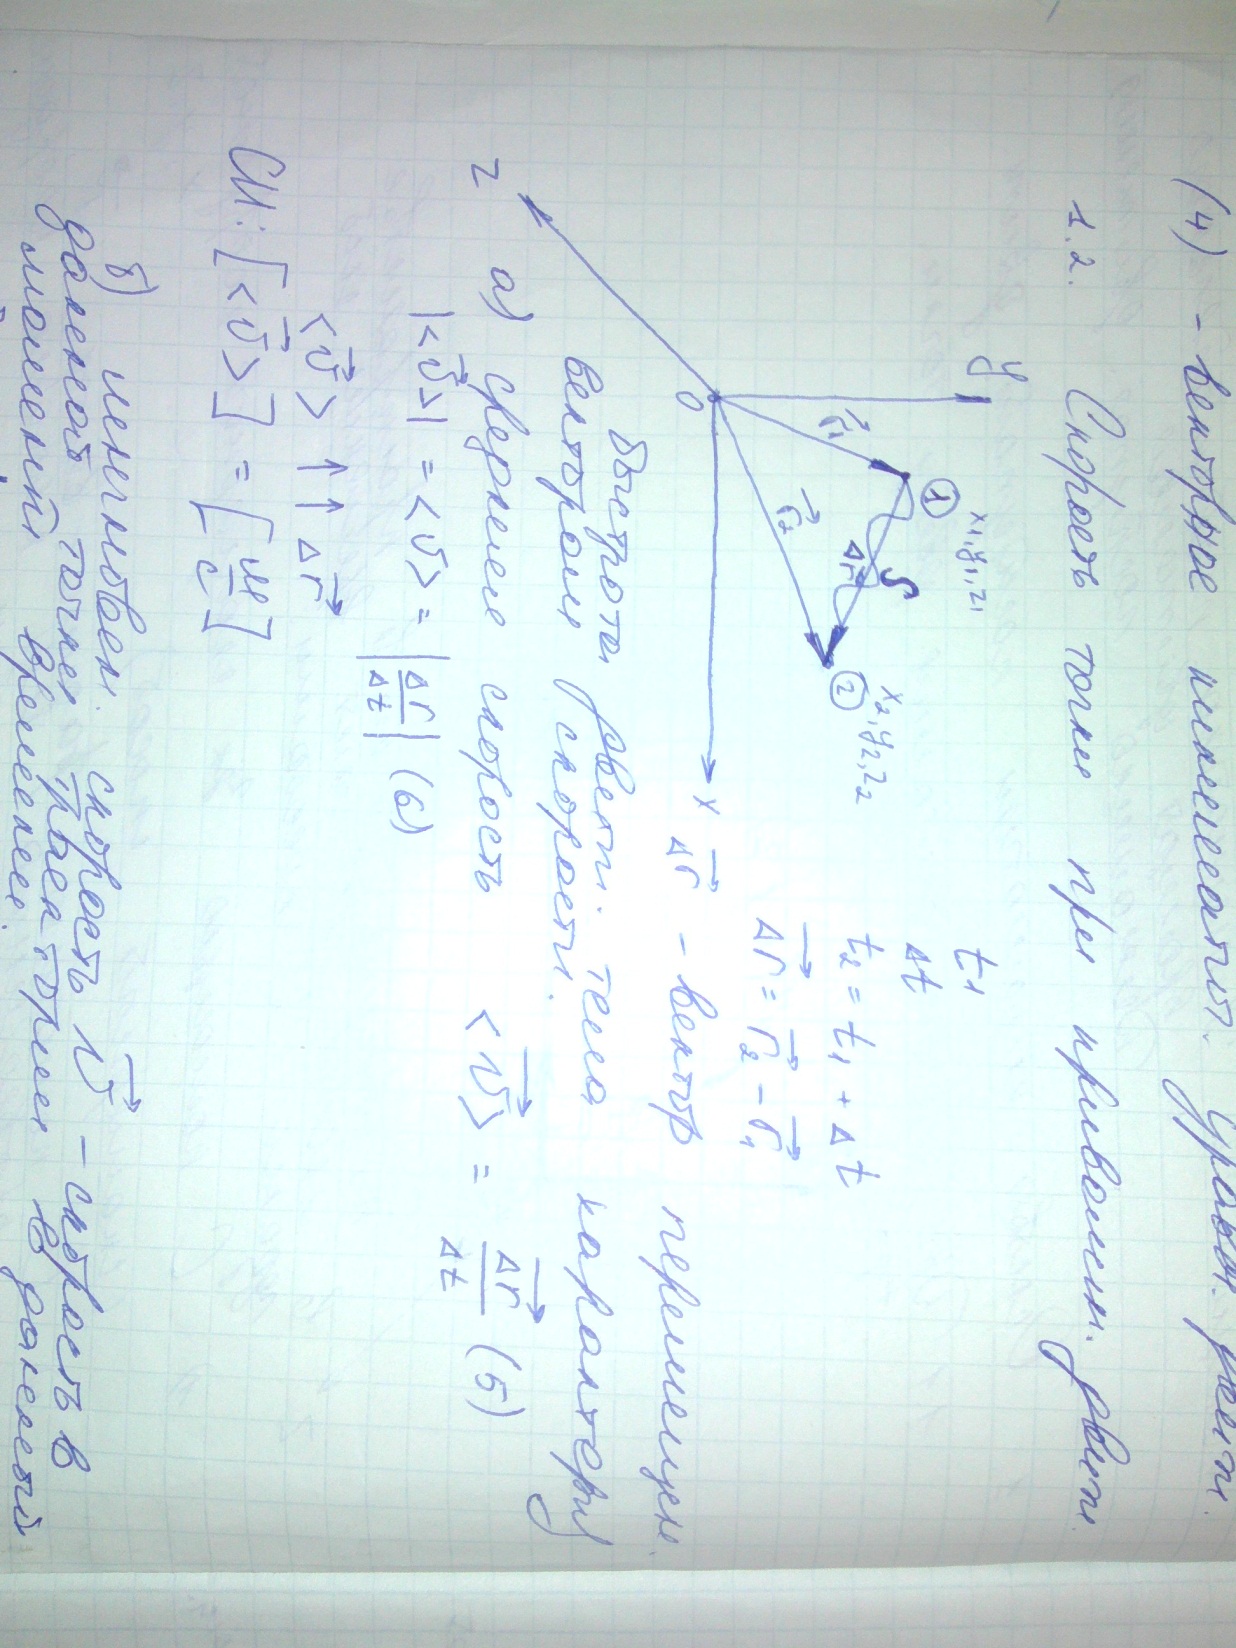 (4) - векторное кинематич. уравн. движ.
1.2. Скорость точки при криволин. движ.
y
① x₁,y₁,z₁
t₁
Δt
r⃗₁
S
② x₂,y₂,z₂
t₂ = t₁ + Δt
Δr⃗
r⃗₂
Δr⃗ = r⃗₂ - r⃗₁
0
x
z
Δr⃗ - вектор перемещен.
Быстрота движ. тела характериз
вектором скорости.
а) средняя скорость <v⃗> = Δr⃗/Δt (5)
|<v⃗>| = <v> = |Δr⃗/Δt| (6)
<v⃗> ↑↑ Δr⃗
СИ: [<v⃗>] = [м/с]
б) мгновен. скорость v⃗ - скорость в
данной точке траектории в данный
момент времени.